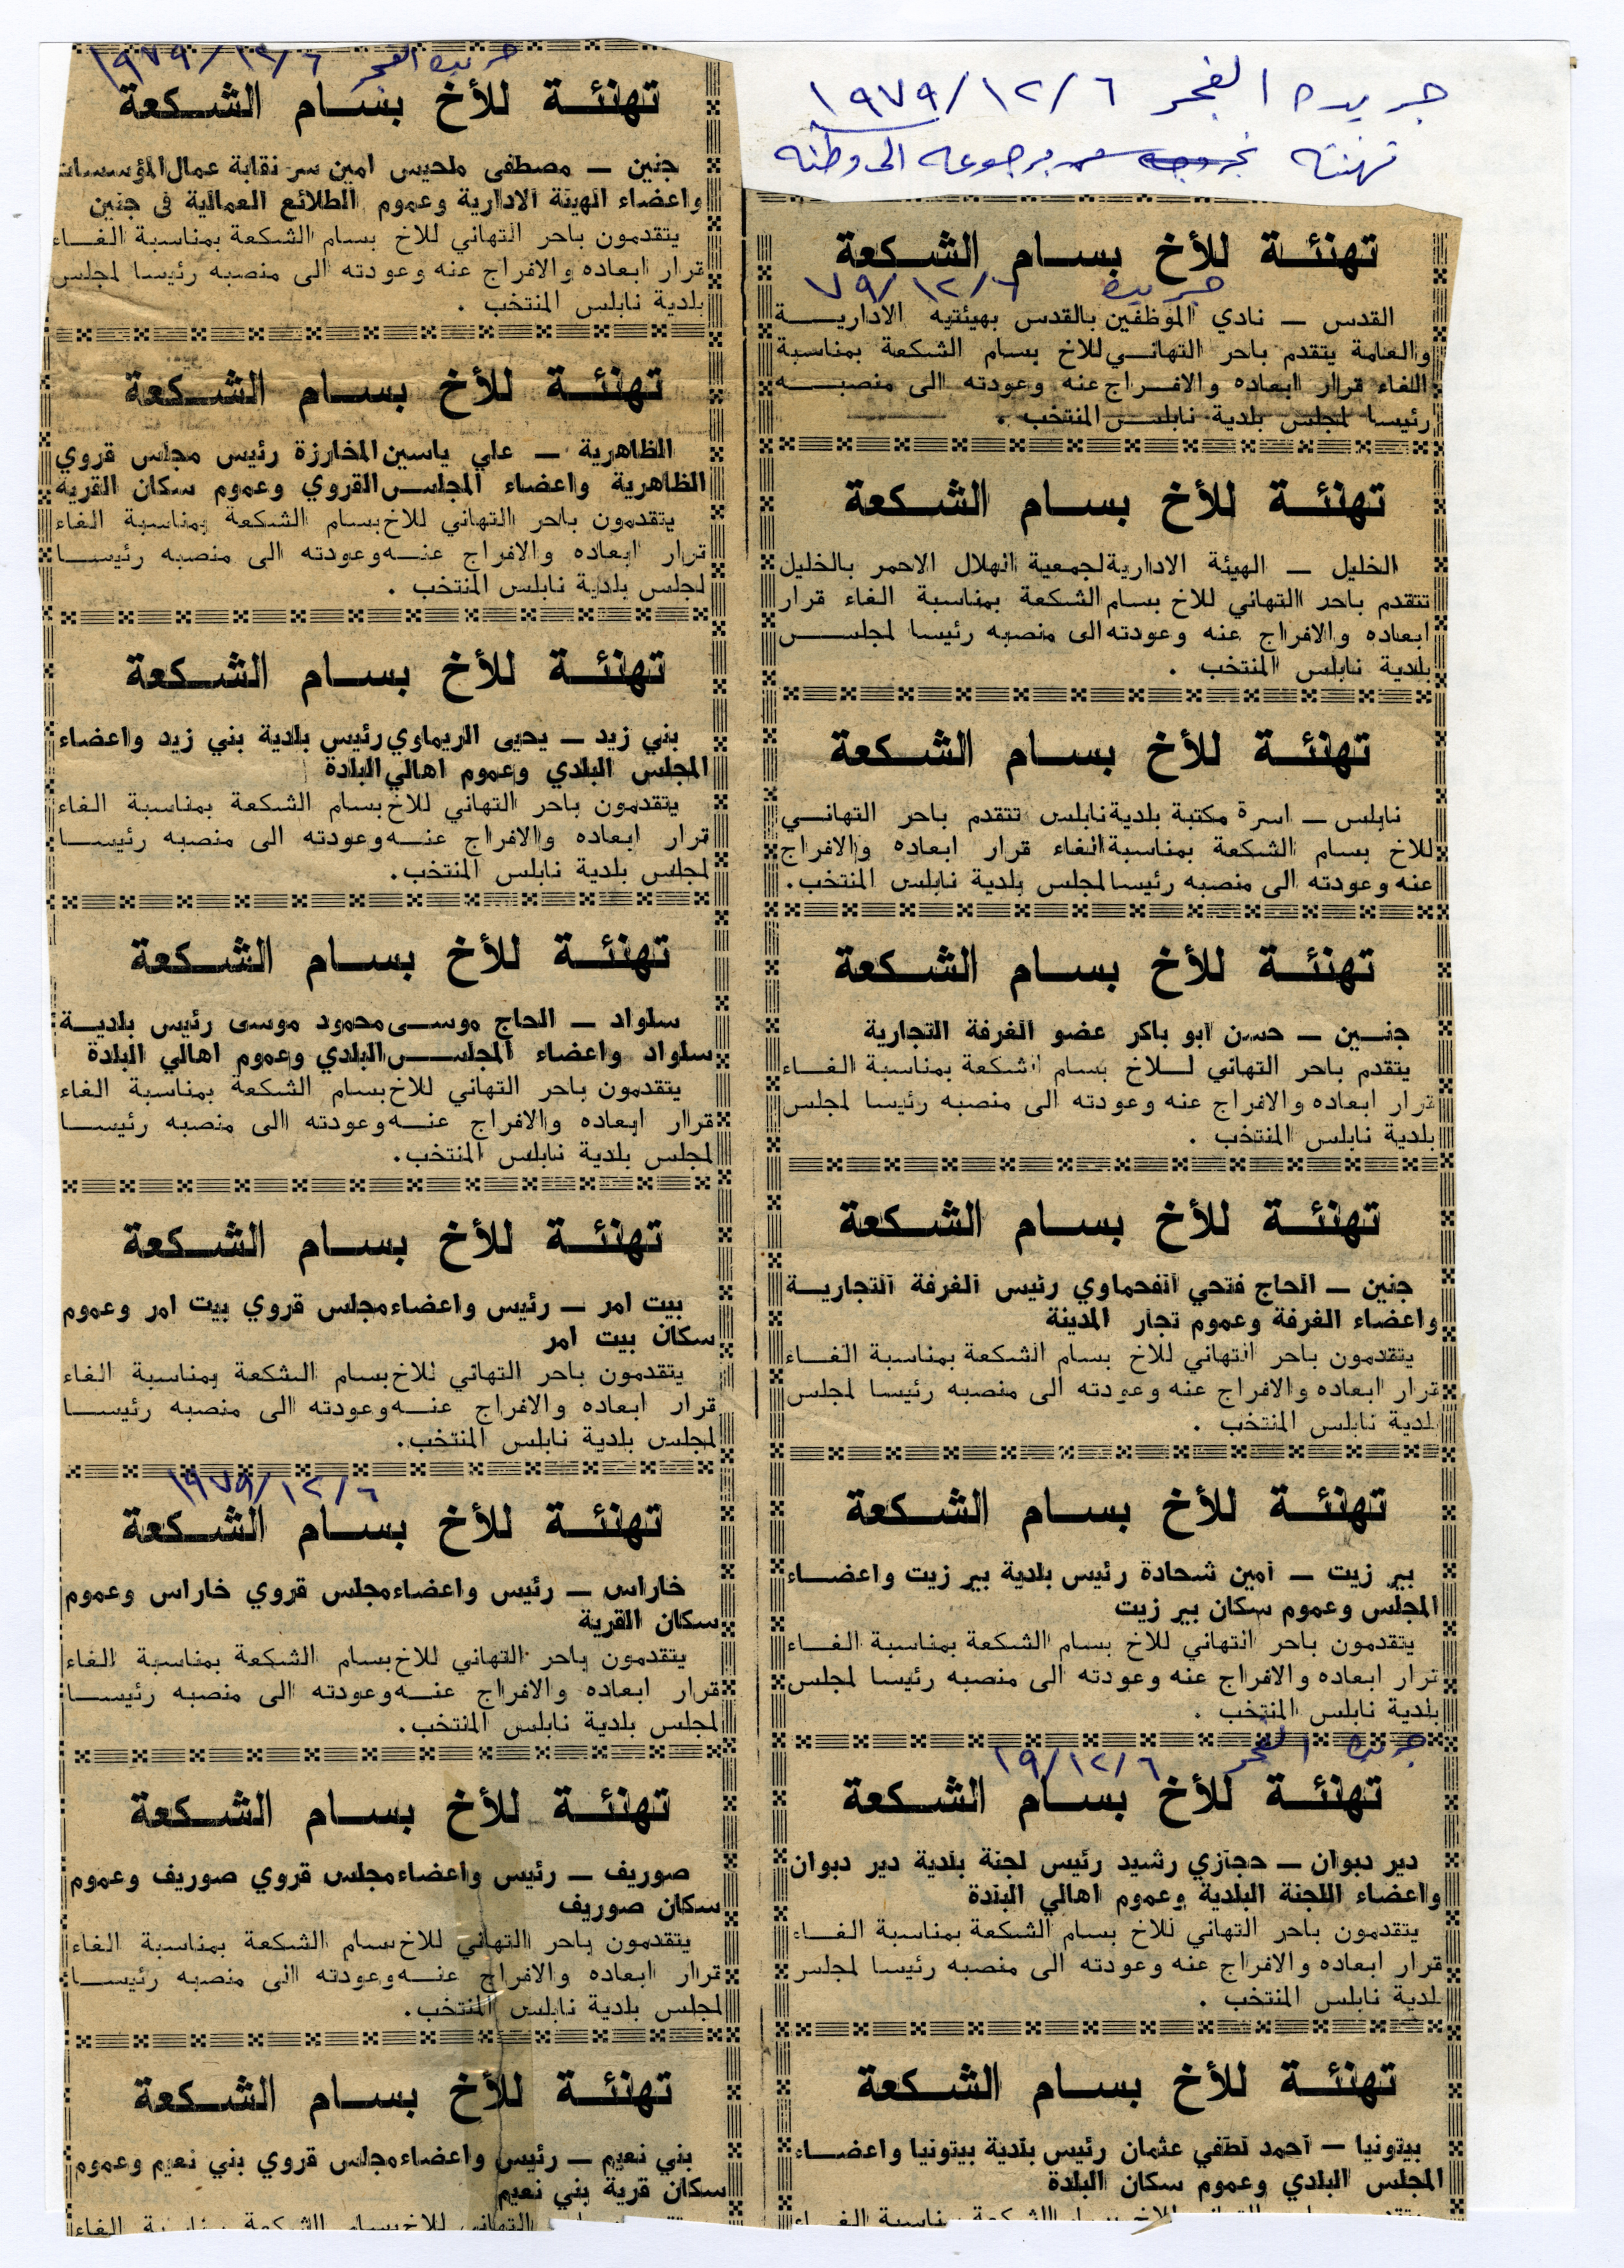 جريده الفجر ١٩٧٩/١٢/٦
تهنئه برجوعه الى وطنه
تهنئة للأخ بسام الشكعة
جريده ٧٩/١٢/٦
القدس – نادي الموظفين بالقدس بهيئتيه الادارية
والعامة يتقدم باحر التهاني للاخ بسام الشكعة بمناسبة
الغاء قرار ابعاده والافراج عنه وعودته الى منصبه
رئيسا لمجلس بلدية نابلس المنتخب .
تهنئة للأخ بسام الشكعة
الخليل – الهيئة الادارية لجمعية الهلال الاحمر بالخليل
تتقدم باحر التهاني للاخ بسام الشكعة بمناسبة الغاء قرار
ابعاده والافراج عنه وعودته الى منصبه رئيسا لمجلس
بلدية نابلس المنتخب .
تهنئة للأخ بسام الشكعة
نابلس – اسرة مكتبة بلدية نابلس تتقدم باحر التهاني
للاخ بسام الشكعة بمناسبة الغاء قرار ابعاده والافراج
عنه وعودته الى منصبه رئيسا لمجلس بلدية نابلس المنتخب.
تهنئة للأخ بسام الشكعة
جنين – حسن ابو باكر عضو الغرفة التجارية
يتقدم باحر التهاني للاخ بسام الشكعة بمناسبة الغاء
قرار ابعاده والافراج عنه وعودته الى منصبه رئيسا لمجلس
بلدية نابلس المنتخب .
تهنئة للأخ بسام الشكعة
جنين – الحاج فتحي الفحماوي رئيس الغرفة التجارية
واعضاء الغرفة وعموم تجار المدينة
يتقدمون باحر التهاني للاخ بسام الشكعة بمناسبة الغاء
قرار ابعاده والافراج عنه وعودته الى منصبه رئيسا لمجلس
بلدية نابلس المنتخب .
تهنئة للأخ بسام الشكعة
بير زيت – امين شحادة رئيس بلدية بير زيت واعضاء
المجلس وعموم سكان بير زيت
يتقدمون باحر التهاني للاخ بسام الشكعة بمناسبة الغاء
قرار ابعاده والافراج عنه وعودته الى منصبه رئيسا لمجلس
بلدية نابلس المنتخب .
جريده الفجر ٧٩/١٢/٦
تهنئة للأخ بسام الشكعة
دير دبوان – حجازي رشيد رئيس لجنة بلدية دير دبوان
واعضاء اللجنة البلدية وعموم اهالي البلدة
يتقدمون باحر التهاني للاخ بسام الشكعة بمناسبة الغاء
قرار ابعاده والافراج عنه وعودته الى منصبه رئيسا لمجلس
بلدية نابلس المنتخب .
تهنئة للأخ بسام الشكعة
بيتونيا – احمد لطفي عثمان رئيس بلدية بيتونيا واعضاء
المجلس البلدي وعموم سكان البلدة
الشكعة بمناسبة الغاء
جريده الفجر ١٩٧٩/١٢/٦
تهنئة للأخ بسام الشكعة
جنين – مصطفى ملحيس امين سر نقابة عمال المؤسسات
واعضاء الهيئة الادارية وعموم الطلائع العمالية في جنين
يتقدمون باحر التهاني للاخ بسام الشكعة بمناسبة الغاء
قرار ابعاده والافراج عنه وعودته الى منصبه رئيسا لمجلس
بلدية نابلس المنتخب .
تهنئة للأخ بسام الشكعة
الظاهرية – علي ياسين المخارزة رئيس مجلس قروي
الظاهرية واعضاء المجلس القروي وعموم سكان القرية
يتقدمون باحر التهاني للاخ بسام الشكعة بمناسبة الغاء
قرار ابعاده والافراج عنه وعودته الى منصبه رئيسا
لمجلس بلدية نابلس المنتخب .
تهنئة للأخ بسام الشكعة
بني زيد – يحيى الريماوي رئيس بلدية بني زيد واعضاء
المجلس البلدي وعموم اهالي البلدة
يتقدمون باحر التهاني للاخ بسام الشكعة بمناسبة الغاء
قرار ابعاده والافراج عنه وعودته الى منصبه رئيسا
لمجلس بلدية نابلس المنتخب.
تهنئة للأخ بسام الشكعة
سلواد – الحاج موسى محمود موسى رئيس بلدية
سلواد واعضاء المجلس البلدي وعموم اهالي البلدة
يتقدمون باحر التهاني للاخ بسام الشكعة بمناسبة الغاء
قرار ابعاده والافراج عنه وعودته الى منصبه رئيسا
لمجلس بلدية نابلس المنتخب.
تهنئة للأخ بسام الشكعة
بيت امر – رئيس واعضاء مجلس قروي بيت امر وعموم
سكان بيت امر
يتقدمون باحر التهاني للاخ بسام الشكعة بمناسبة الغاء
قرار ابعاده والافراج عنه وعودته الى منصبه رئيسا
لمجلس بلدية نابلس المنتخب.
١٩٧٩/١٢/٦
تهنئة للأخ بسام الشكعة
خاراس – رئيس واعضاء مجلس قروي خاراس وعموم
سكان القرية
يتقدمون باحر التهاني للاخ بسام الشكعة بمناسبة الغاء
قرار ابعاده والافراج عنه وعودته الى منصبه رئيسا
لمجلس بلدية نابلس المنتخب.
تهنئة للأخ بسام الشكعة
صوريف – رئيس واعضاء مجلس قروي صوريف وعموم
سكان صوريف
يتقدمون باحر التهاني للاخ بسام الشكعة بمناسبة الغاء
قرار ابعاده والافراج عنه وعودته الى منصبه رئيسا
لمجلس بلدية نابلس المنتخب.
تهنئة للأخ بسام الشكعة
بني نعيم – رئيس واعضاء مجلس قروي بني نعيم وعموم
سكان قرية بني نعيم
التهاني للاخ بسام الشكعة بمناسبة الغاء